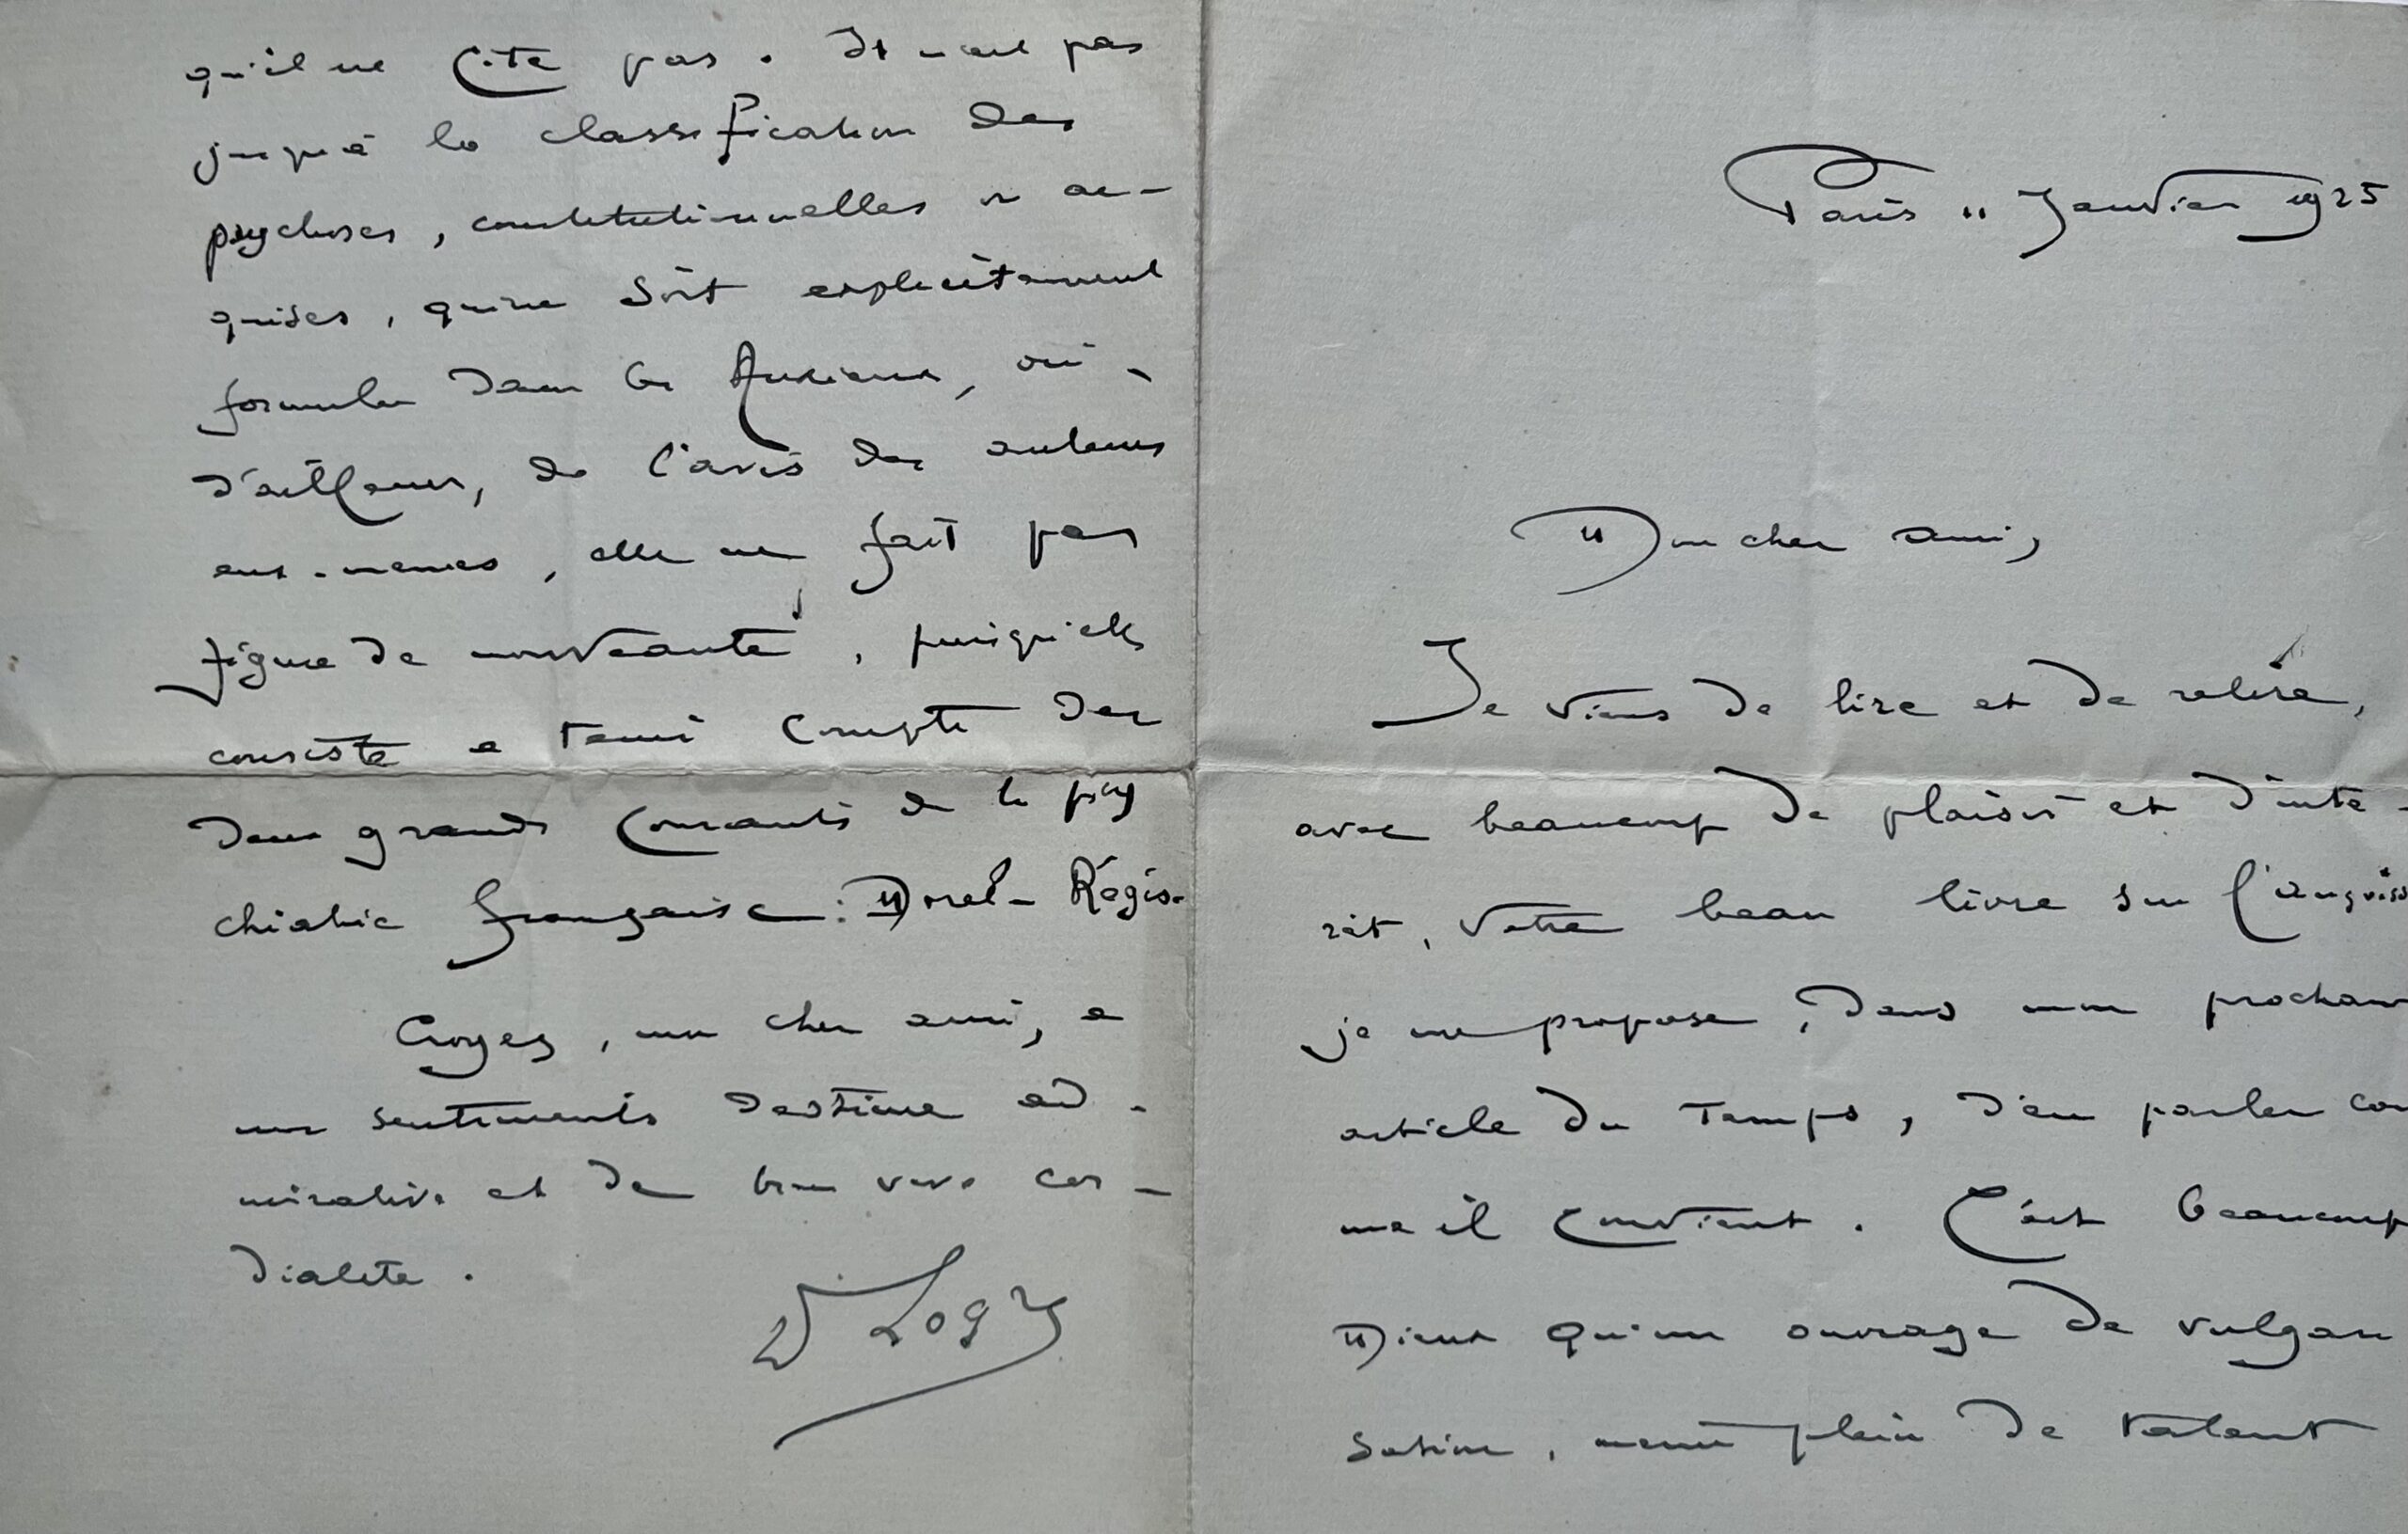 Paris 11 Janvier 1925
Mon cher ami,
Je viens de lire et de relire,
avec beaucoup de plaisir et d'inte-
rêt, votre beau livre sur l'angoiss
je me propose, dans mon prochain
article du Temps, d'en parler com
me il convient. C'est beaucoup
Mieux qu'un ouvrage de vulgari
sation, même plein de talent
qu'il ne cite pas. Il n'est pas
jusqu'à la classification des
psychoses, constitutionnelles ou ac-
quises, qui ne soit explicitement
formulée dans les Anxieux, où,
d'ailleurs, de l'avis des auteurs
eux-mêmes, elle ne fait pas
figure de nouveauté, puisqu'elle
consiste à tenir compte des
deux grands courants de la psy
chiatrie française : Morel - Régis.
Croyez, mon cher ami, à
mes sentiments d'estime ad-
mirative et de bien vive cor-
dialité.
Logre